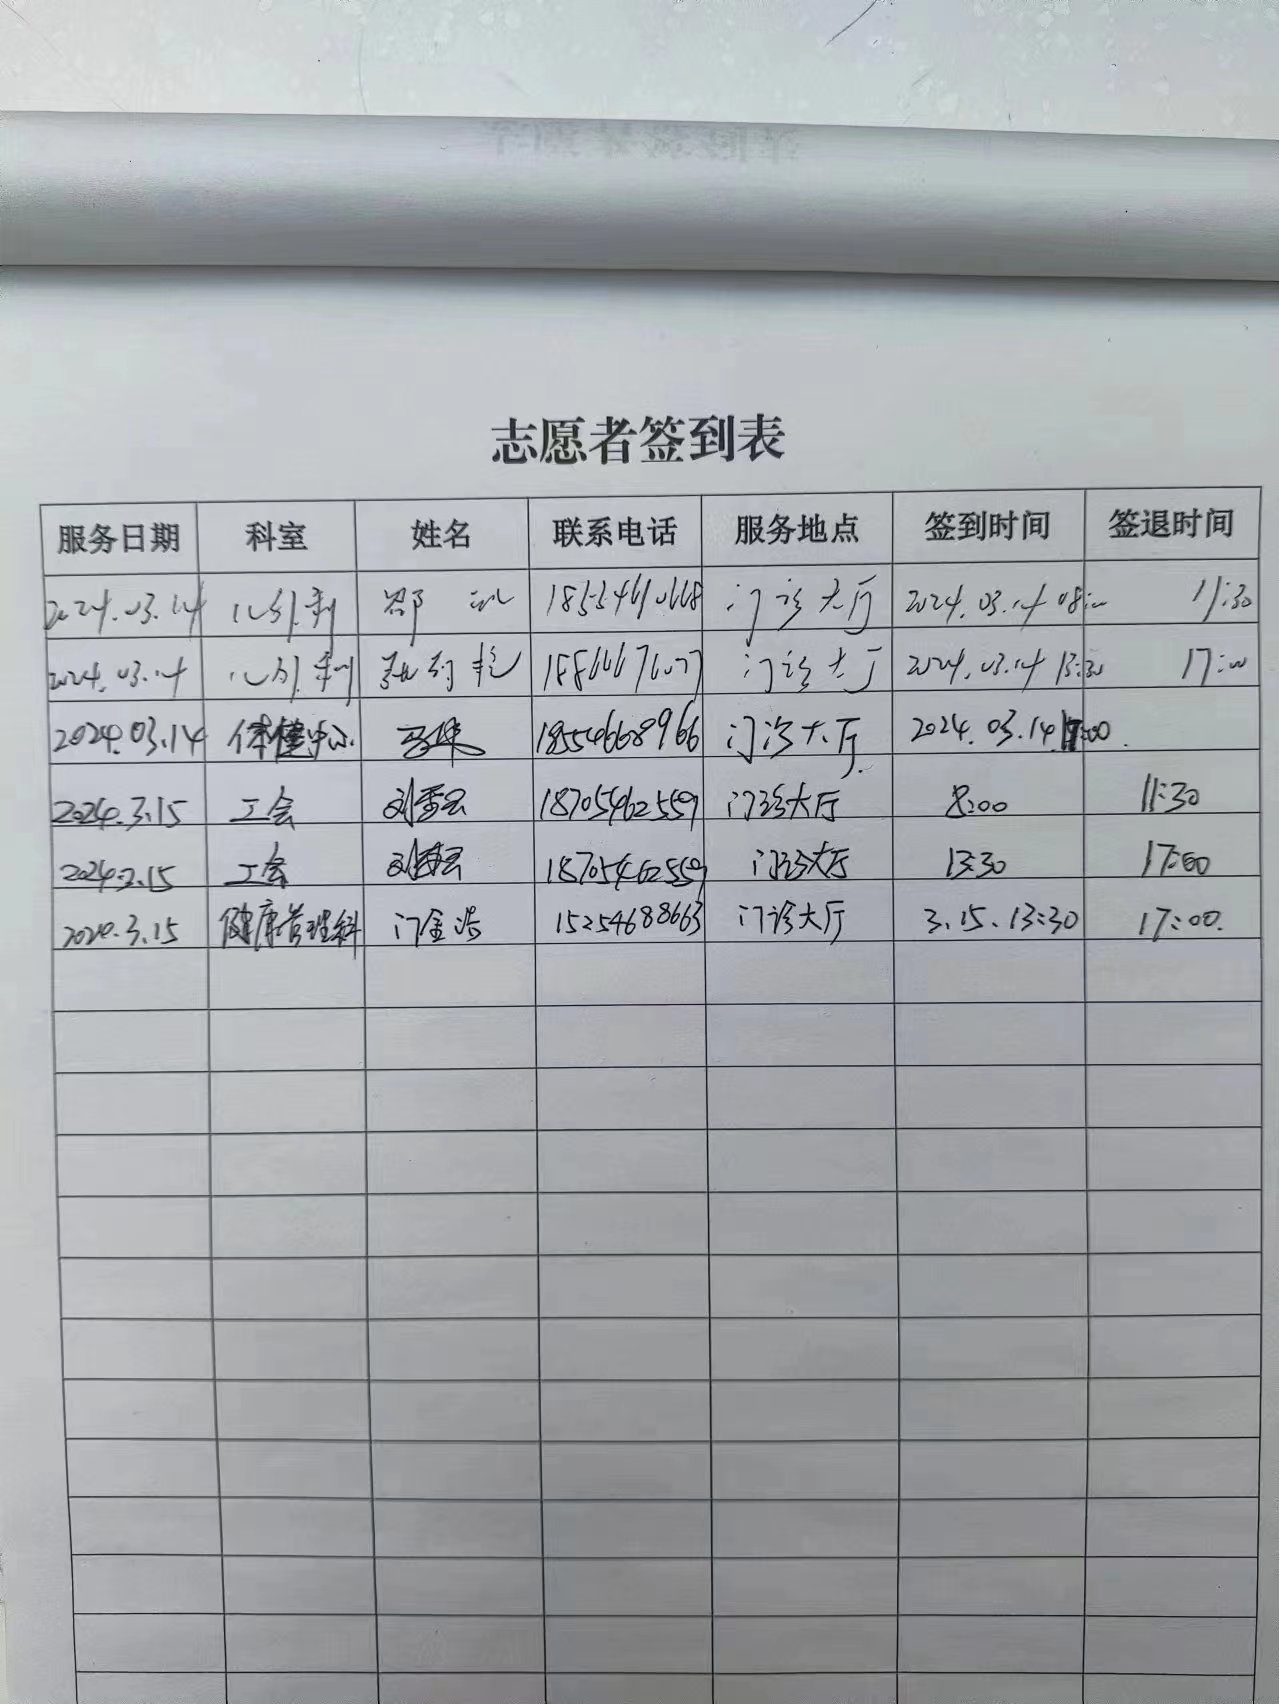 志愿者签到表
服务日期 科室 姓名 联系电话 服务地点 签到时间 签退时间
2024.03.14 心外科 邵 门诊大厅 2024.03.14 08:00 11:30
2024.03.14 心外科 门诊大厅 2024.03.14 13:30 17:00
2024.03.14 体检中心 18554668966 门诊大厅 2024.03.14 17:00
2024.3.15 工会 刘 18705462559 门诊大厅 8:00 11:30
2024.3.15 工会 刘 18705462559 门诊大厅 13:30 17:00
3.15 健康管理科 门金浩 15254688663 门诊大厅 3.15. 13:30 17:00.